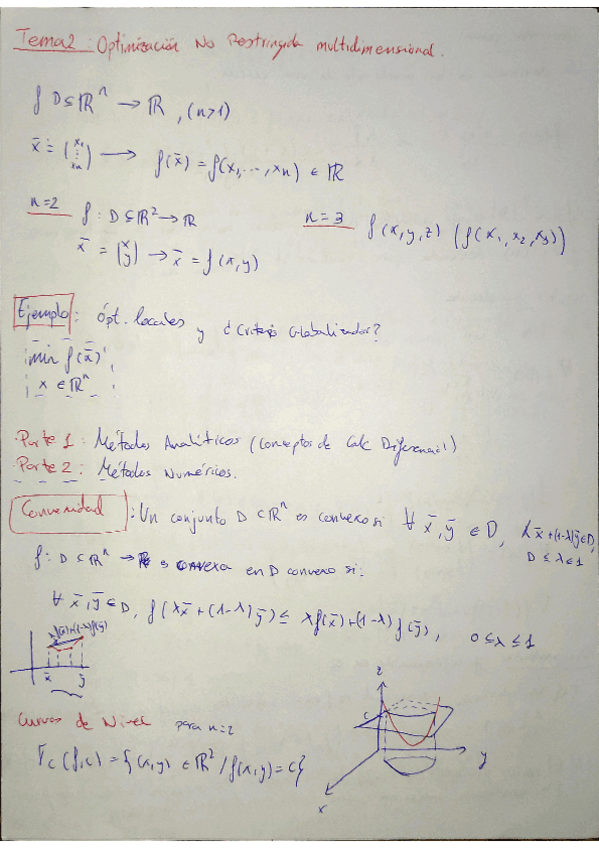 Tema 2: Optimización No Restringida multidimensional.
f D⊆ℝⁿ → ℝ, (n>1)
x̄ = (x₁ ⋮ xₙ) → f(x̄) = f(x₁, ..., xₙ) ∈ ℝ
n=2 f: D⊆ℝ² → ℝ n=3 f(x,y,z) (f(x₁, x₂, x₃))
x̄ = (x y) → x̄ = f(x,y)
Ejemplo: Ópt. locales y ¿Criterio Globalizador?
min f(x̄)
x ∈ ℝⁿ
Parte 1: Métodos Analíticos (Conceptos de Calc Diferencial)
Parte 2: Métodos Numéricos.
Convexidad: Un conjunto D ⊂ ℝⁿ es convexo si ∀ x̄, ȳ ∈ D, λx̄+(1-λ)ȳ ∈ D,
0 ≤ λ ≤ 1
f: D ⊂ ℝⁿ → ℝ es convexa en D convexo si:
∀ x̄, ȳ ∈ D, f(λx̄ + (1-λ)ȳ) ≤ λf(x̄) + (1-λ) f(ȳ), 0 ≤ λ ≤ 1
λf(x̄)+(1-λ)f(ȳ)
x̄ ȳ
z
c
Curvas de Nivel para n=2
(f,c) = {(x,y) ∈ ℝ² / f(x,y) = c}
y
x